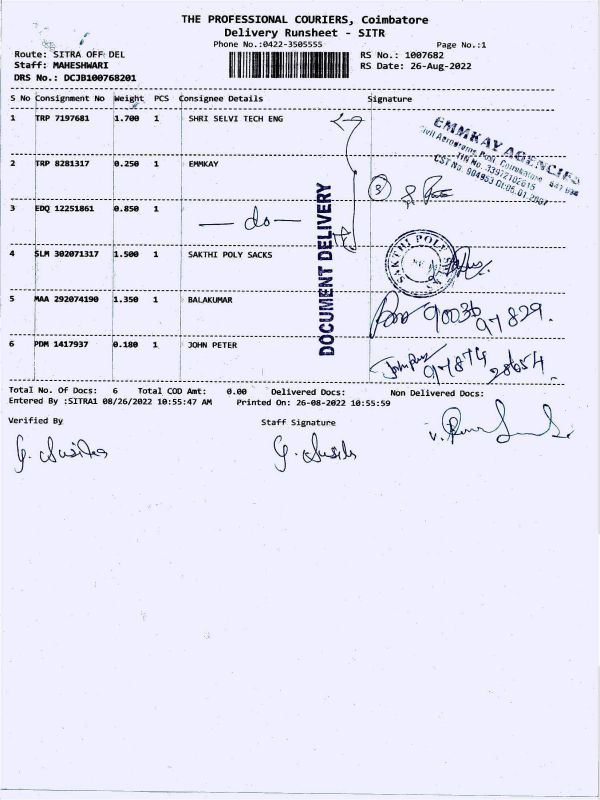 THE PROFESSIONAL COURIERS, Coimbatore
Delivery Runsheet - SITR
Phone No.:0422-3505555 Page No.:1
Route: SITRA OFF DEL RS No.: 1007682
Staff: MAHESHWARI RS Date: 26-Aug-2022
DRS No.: DCJB100768201
S No Consignment No Weight PCS Consignee Details Signature
1 TRP 7197681 1.700 1 SHRI SELVI TECH ENG
EMMKAY AGENCIES
Civil Aerodrome Post, Coimbatore
TIN No.
CST No. 904953
2 TRP 8281317 0.250 1 EMMKAY
3
3 EDQ 12251861 0.850 1 — do —
DOCUMENT DELIVERY
4 SLM 302071317 1.500 1 SAKTHI POLY SACKS
SAKTHI POLY
5 MAA 292074190 1.350 1 BALAKUMAR
90036 97829.
6 PDM 1417937 0.180 1 JOHN PETER
97874 28654.
Total No. Of Docs: 6 Total COD Amt: 0.00 Delivered Docs: Non Delivered Docs:
Entered By :SITRA1 08/26/2022 10:55:47 AM Printed On: 26-08-2022 10:55:59
Verified By Staff Signature